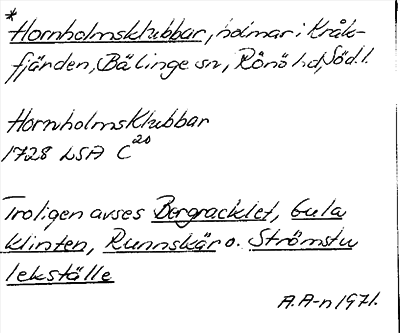 * Hornholmsklubbar, holmar i Kråk-
fjärden, Bälinge sn, Rönö hd, Söd. l.
Hornholms Klubbar
1728 LSA C 20
Troligen avses Bergracklet, Gula
klinten, Runnskär o. Strömstu
lekställe
A.A-n 1971.